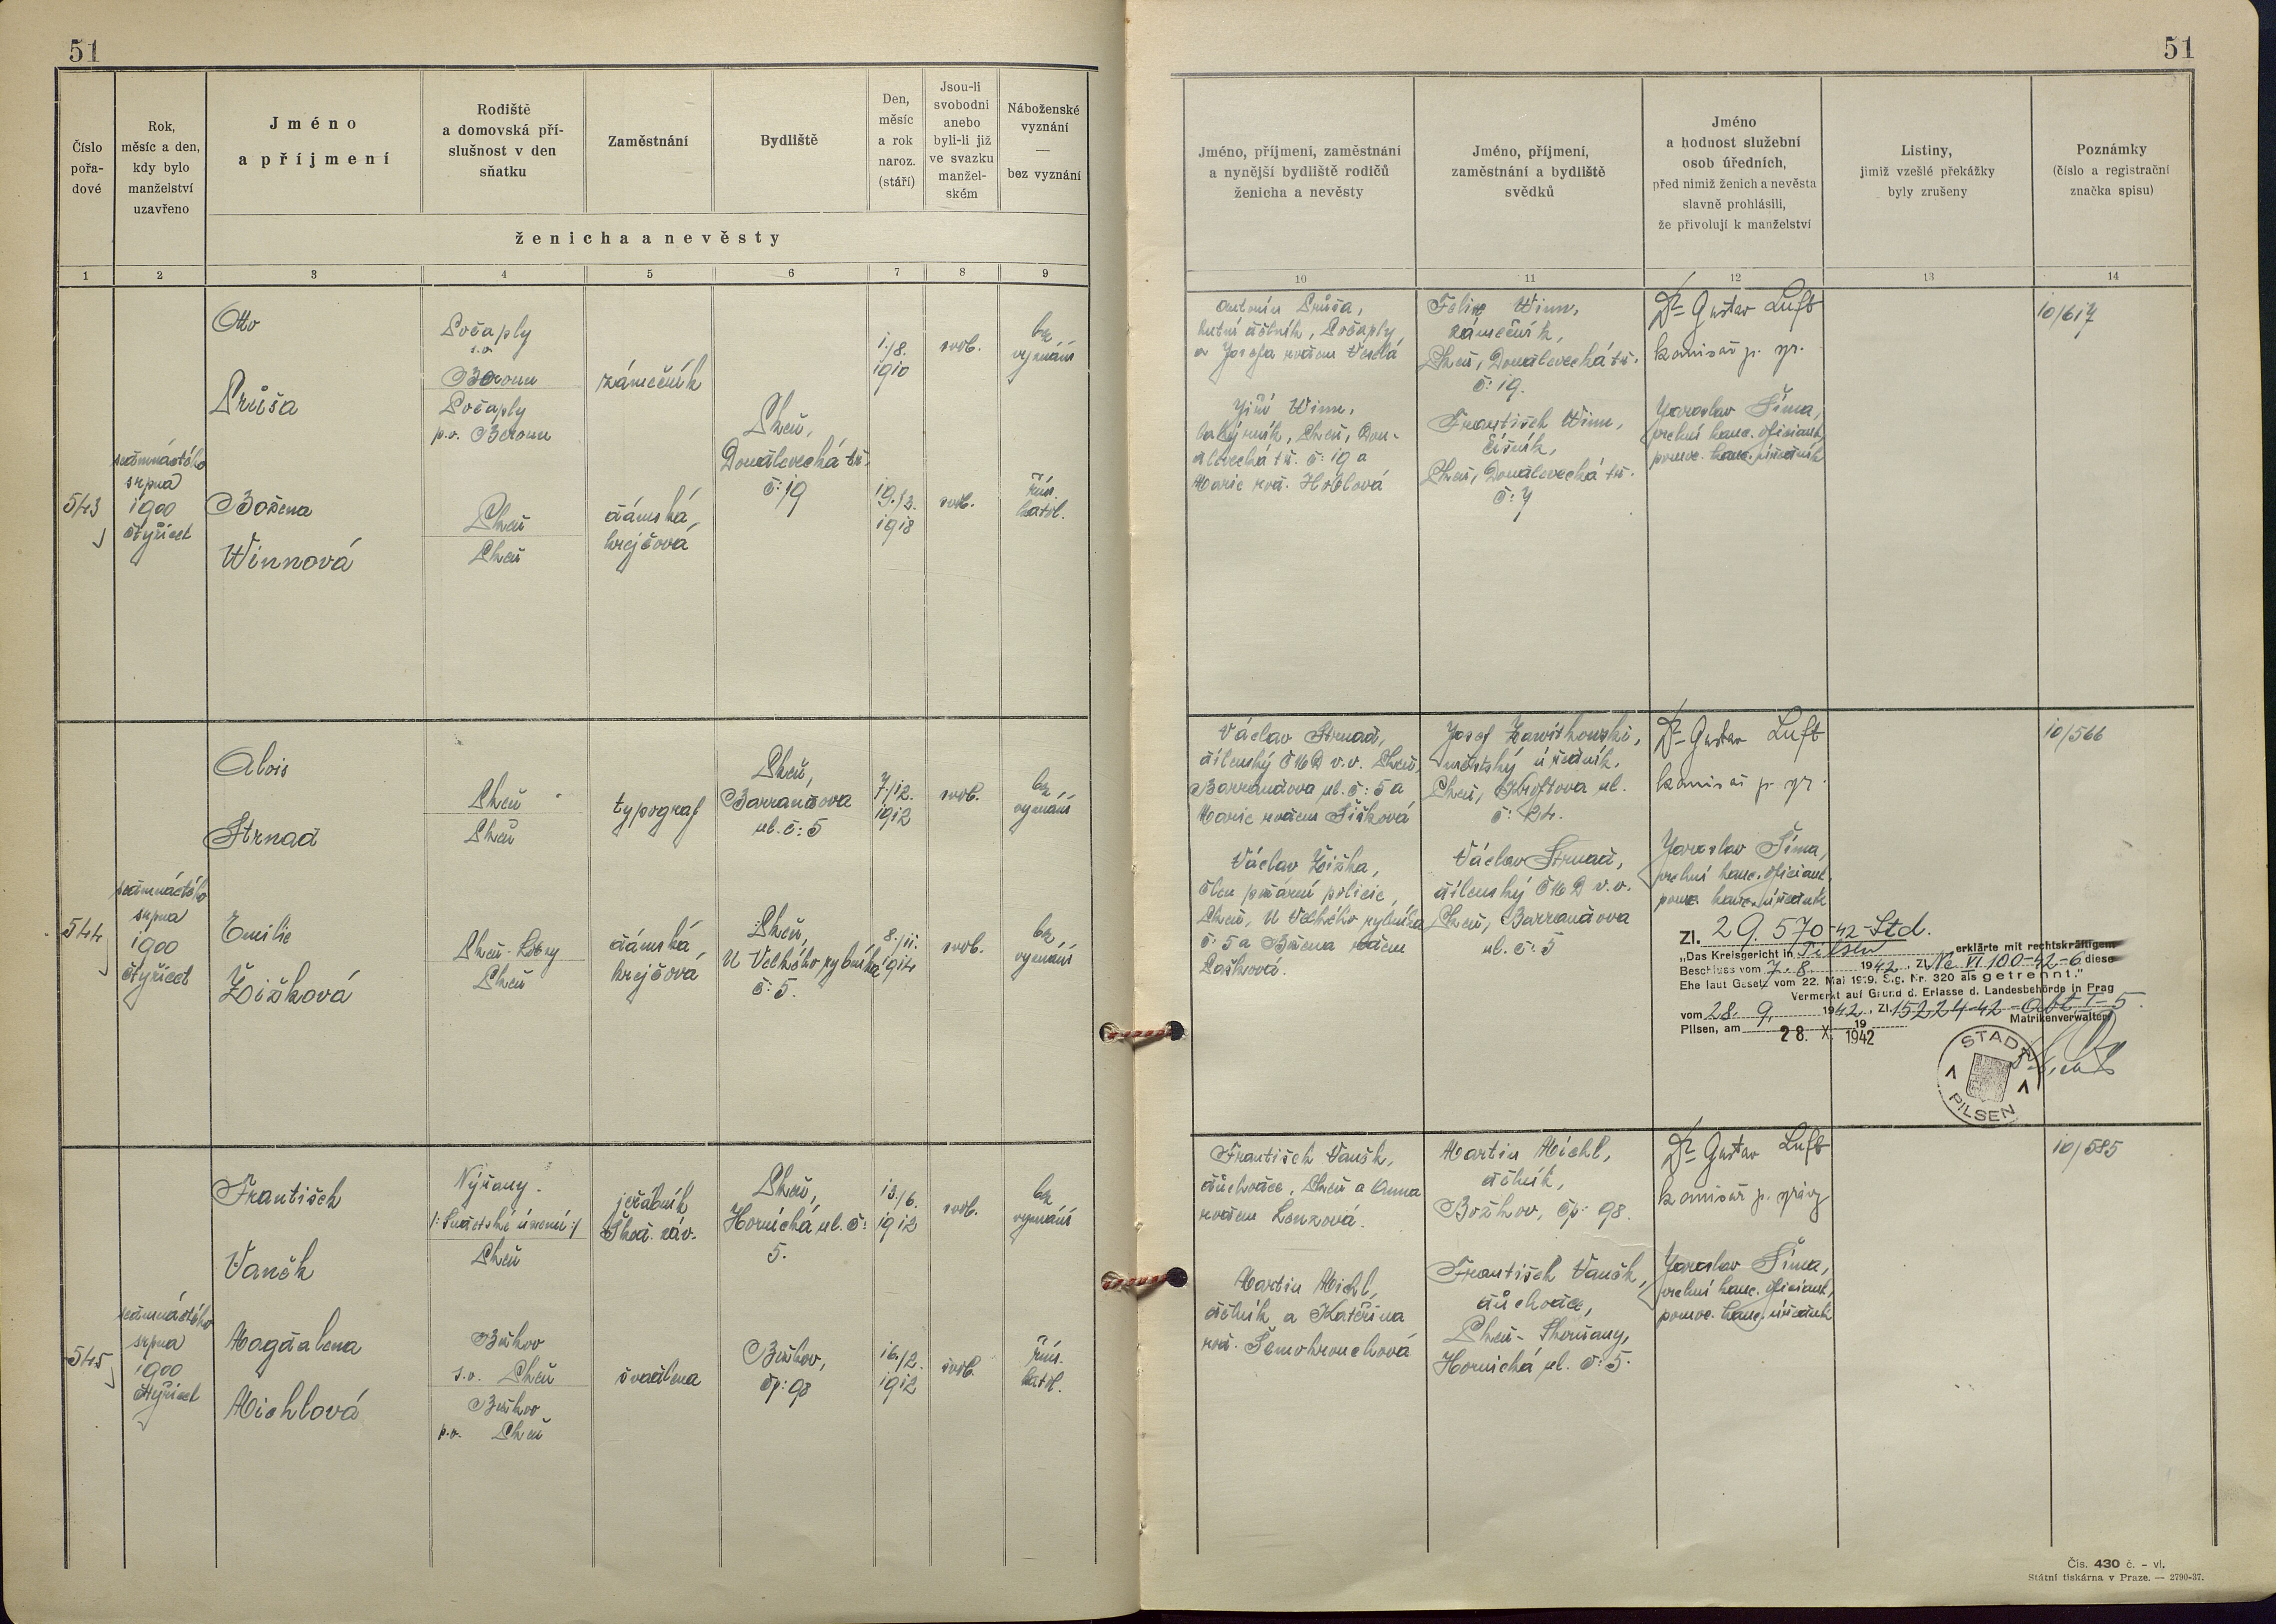 51
51
Číslo
pořa-
dové
Rok,
měsíc a den,
kdy bylo
manželství
uzavřeno
Jméno
a příjmení
Rodiště
a domovská pří-
slušnost v den
sňatku
Zaměstnání
Bydliště
Den,
měsíc
a rok
naroz.
(stáří)
Jsou-li
svobodni
anebo
byli-li již
ve svazku
manžel-
ském
Náboženské
vyznání
—
bez vyznání
ženicha a nevěsty
Jméno, příjmení, zaměstnání
a nynější bydliště rodičů
ženicha a nevěsty
Jméno, příjmení,
zaměstnání a bydliště
svědků
Jméno
a hodnost služební
osob úředních,
před nimiž ženich a nevěsta
slavně prohlásili,
že přivolují k manželství
Listiny,
jimiž vzešlé překážky
byly zrušeny
Poznámky
(číslo a registrační
značka spisu)
1 2 3 4 5 6 7 8 9 10 11 12 13 14
543
sedmnáctého
srpna
1900
čtyřicet
Otto
Průša
Počaply
s.o.
Beroun
Počaply
p.o. Beroun
zámečník
1./8.
1910
svob.
bez
vyznání
Plzeň,
Doudlevecká tř.
č: 19
Božena
Winnová
Plzeň
Plzeň
dámská
krejčová
19./2.
1918
svob.
řím.
katol.
Antonín Průša,
hutní dělník, Počaply
a Josefa rozen Veselá
Jiří Winn,
Plzeň, Dou-
dlevecká tř. č: 19 a
Marie roz. Hoblová
Felix Winn,
zámečník,
Plzeň, Doudlevecká tř.
č: 19.
František Winn,
číšník,
Plzeň, Doudlevecká tř.
č: 7
Dr Gustav Luft
komisař p. spr.
Jaroslav Šíma,
vrchní kanc. oficiant,
pomoc. kanc. úředník
10/617
544
sedmnáctého
srpna
1900
čtyřicet
Alois
Strnad
Plzeň
Plzeň
typograf
Plzeň,
Barrandova
ul. č: 5
7/12.
1912
svob.
bez
vyznání
Emilie
Žižková
Plzeň-Lobzy
Plzeň
dámská
krejčová
Plzeň,
U Velkého rybníka
č: 5.
8./11.
1914
svob.
bez
vyznání
Václav Strnad,
dílenský ČMD v.v. Plzeň,
Barrandova ul. č: 5 a
Marie rozen Šišková
Václav Žižka,
člen požární policie,
Plzeň, U Velkého rybníka
č: 5 a Božena rozen
Pašková.
Josef Zawitkowski,
městský úředník,
Plzeň, Kroftova ul.
č: 24.
Václav Strnad,
dílenský ČMD v.v.
Plzeň, Barrandova
ul. č: 5
Dr Gustav Luft
komisař p. spr.
Jaroslav Šíma,
vrchní kanc. oficiant,
pomoc. kanc. úředník
10/566
Zl. 29.570-42-Std.
„Das Kreisgericht in Pilsen erklärte mit rechtskräftigem
Beschluss vom 7. 8. 1942, Zl. Nc VI 100-42-6 diese
Ehe laut Gesetz vom 22. Mai 1919, S.g. Nr. 320 als getrennt."
Vermerkt auf Grund d. Erlasse d. Landesbehörde in Prag
vom 28. 9. 1942, Zl. 15224-42-Abt. I-5.
Matrikenverwalter:
Pilsen, am 28. X. 1942
19
STADT
PILSEN
545
sedmnáctého
srpna
1900
čtyřicet
František
Vaněk
Nýřany.
/: Sudetské území :/
Plzeň
jeřábník
Škod. záv.
Plzeň,
Hornická ul. č:
5.
13./6.
1912
svob.
bez
vyznání
Magdalena
Michlová
Božkov
s.o. Plzeň
Božkov
p.o. Plzeň
švadlena
Božkov,
čp: 98
16./2.
1912
svob.
řím.
katol.
František Vaněk,
důchodce, Plzeň a Anna
rozen Lenzová.
Martin Michl,
dělník a Kateřina
roz. Černohrouchová
Martin Michl,
dělník,
Božkov, čp: 98.
František Vaněk,
důchodce,
Plzeň-Skvrňany,
Hornická ul. č: 5.
Dr Gustav Luft
komisař p. správy
Jaroslav Šíma,
vrchní kanc. oficiant,
pomoc. kanc. úředník
10/585
Čís. 430 č. - vl.
Státní tiskárna v Praze. — 2790-37.